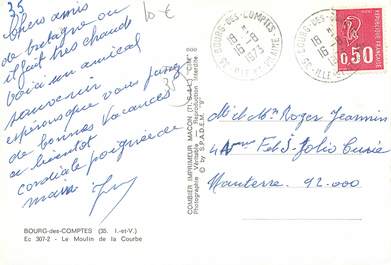 35
10 €
chers amis
de bretagne ou
il fait très chaud
voici un amical
souvenir
espérons que vous passez
de bonnes vacances
a bientot
cordiale poignée de
main
35
BOURG-DES-COMPTES
16-8
1973
35 ILLE-ET-VILAINE
BOURG-DES-COMPTES
16-8
0,50
COMBIER IMPRIMEUR MACON (T. S.-&-L.) "CIM"
Photographie Véritable - Reproduction Interdite
© by S.P.A.D.E.M.
M. et Mme Roger Jeannin
Joliot Curie
Nanterre 92.000
BOURG-des-COMPTES (35. I.-et-V.)
Ec 307-2 - Le Moulin de la Courbe